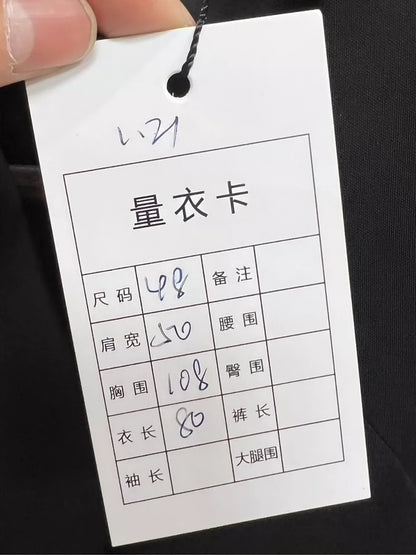 1.21
量衣卡
尺码 48 备注
肩宽 50 腰围
胸围 108 臀围
衣长 80 裤长
袖长 大腿围